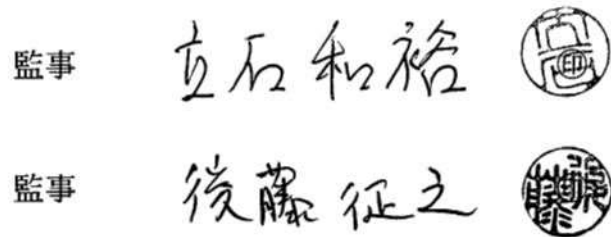 監事 立石和裕
監事 後藤征之